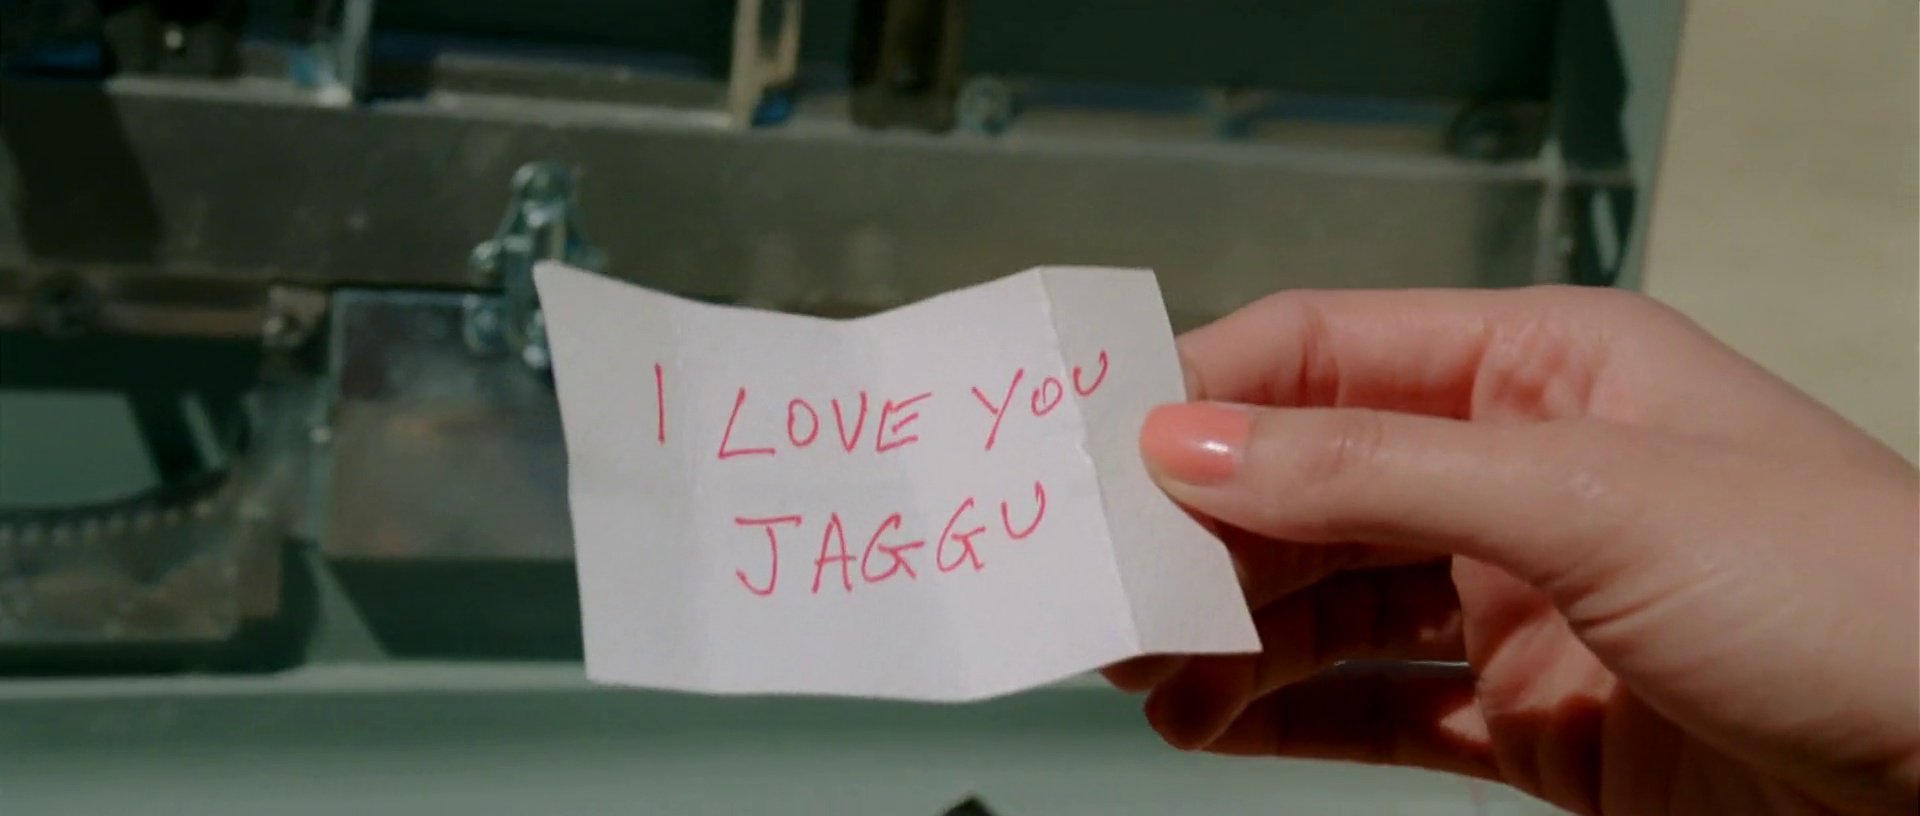 I LOVE YOU
JAGGU